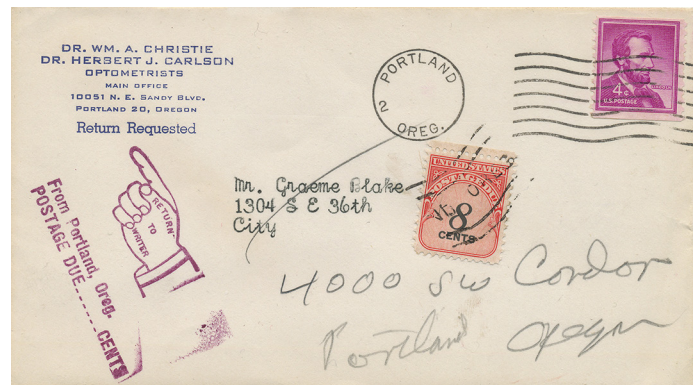 DR. WM. A. CHRISTIE
DR. HERBERT J. CARLSON
OPTOMETRISTS
MAIN OFFICE
10051 N. E. SANDY BLVD.
PORTLAND 20, OREGON
Return Requested
PORTLAND
2
OREG.
4¢
U.S. POSTAGE
UNITED STATES
POSTAGE DUE
8
CENTS
Mr. Graeme Blake
1304 S E 36th
City
RETURN
TO
WRITER
From Portland, Oreg.
POSTAGE DUE......CENTS
4000 SW Condor
Portland Oregon